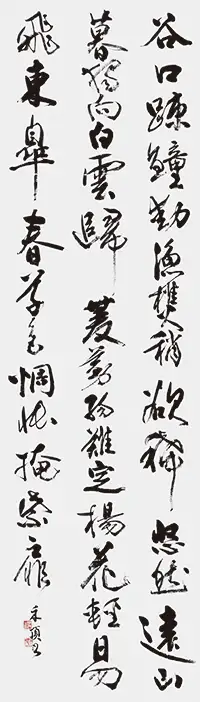 谷口踈鐘動漁樵稍欲稀悠然遠山
暮獨向白雲歸菱蔓弱難定楊花輕易
飛東皐春草色惆悵掩柴扉